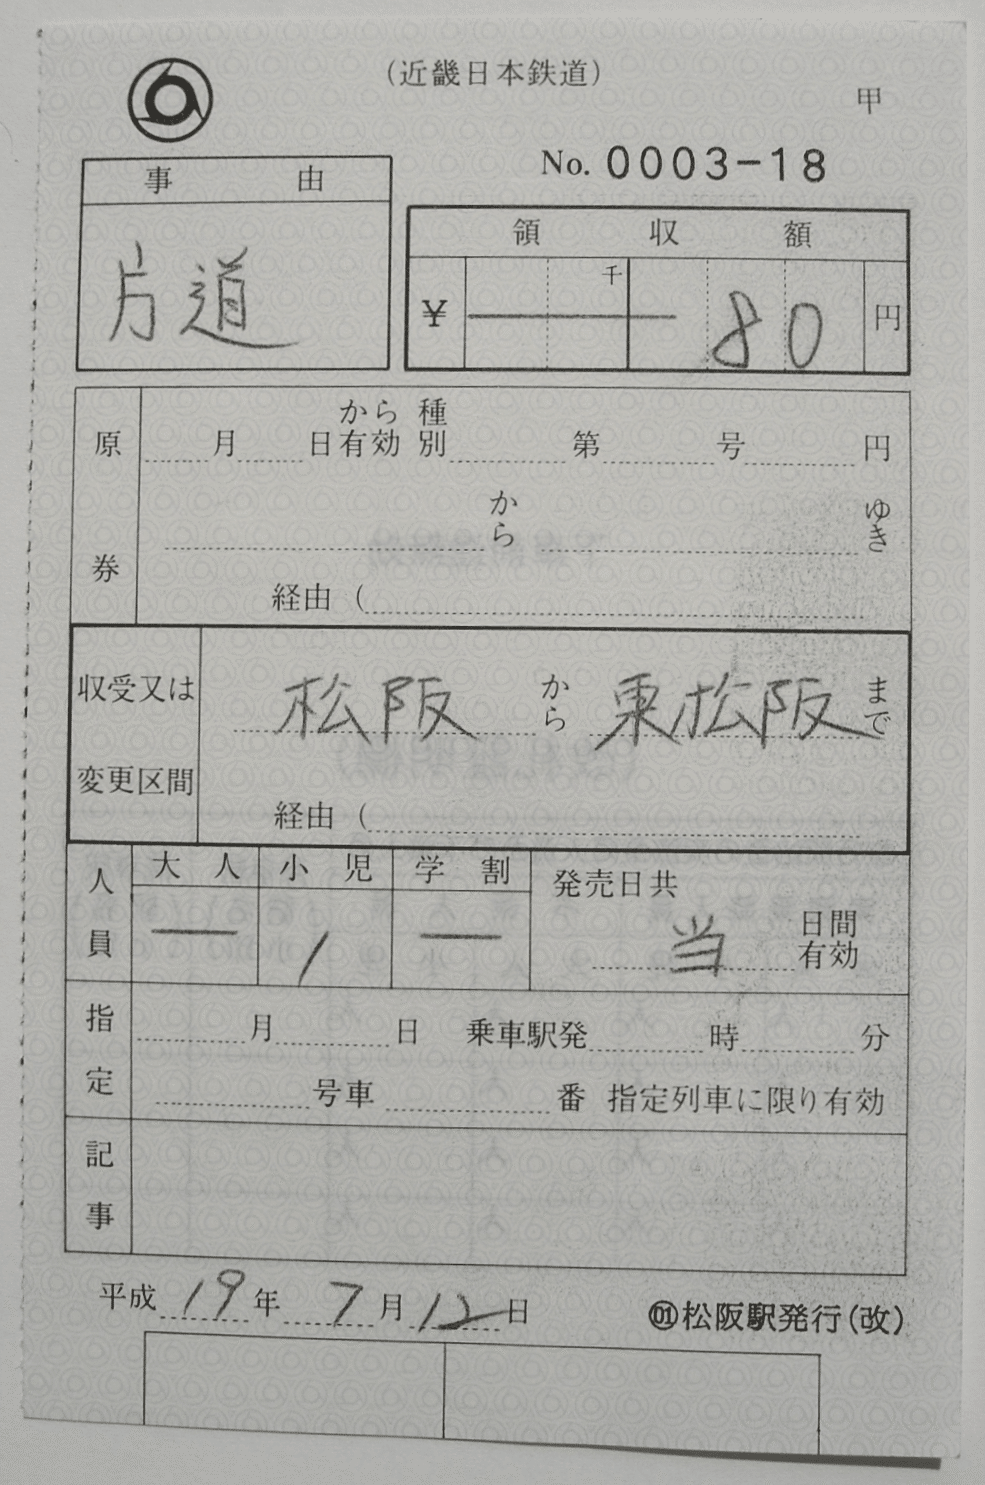 (近畿日本鉄道)
甲
No. 0003-18
事由
片道
領収額
¥ 千 80 円
原券
月 日から有効 種別 第 号 円
から ゆき
経由 (
収受又は変更区間
松阪 から 東松阪 まで
経由 (
人員
大人 小児 学割
— / —
発売日共 当 日間有効
指定
月 日 乗車駅発 時 分
号車 番 指定列車に限り有効
記事
平成 19 年 7 月 12 日
01松阪駅発行(改)